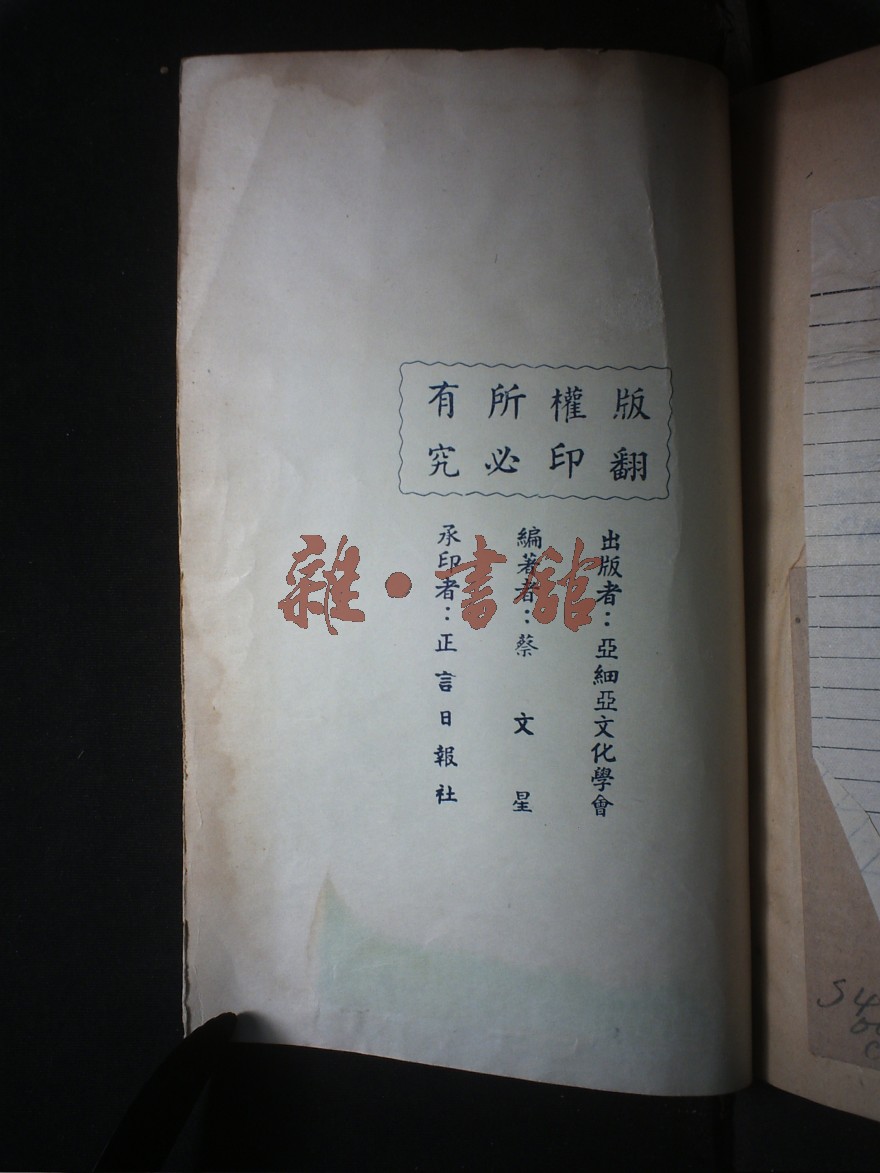 版權所有
翻印必究
出版者：亞細亞文化學會
編著者：蔡文星
承印者：正言日報社
雜·書館
S4